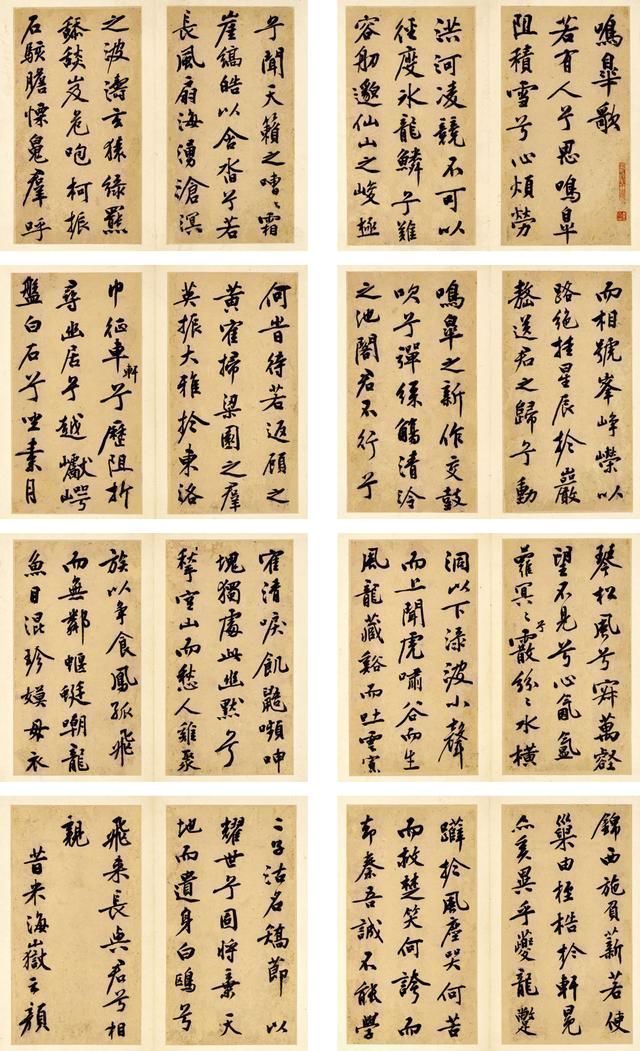 鳴皋歌
若有人兮思鳴皋
阻積雪兮心煩勞
洪河凌競不可以
徑度冰龍鱗兮難
容舠邈仙山之峻極
兮聞天籟之嘈〻霜
崖縞皓以合沓兮若
長風扇海湧滄溟
之波濤玄猿綠羆
舔舕岌危咆柯振
石駭膽慄魄羣呼
而相號峯崢嶸以
路絕挂星辰於巖
嶅送君之歸兮動
鳴皋之新作交鼓
吹兮彈絲觴清泠
之池閣君不行兮
何昔待若返顧之
黃寉掃梁園之羣
英振大雅於東洛
巾征車軒兮歷阻折
尋幽居兮越巘崿
盤白石兮坐素月
琴松風兮寂萬壑
望不見兮心氤氳
蘿冥〻兮霰紛〻水橫
洞以下淥波小聲
而上聞虎嘯谷而生
風龍藏谿而吐雲寡
寉清唳飢鼯嚬呻
塊獨處此幽默兮
空山而愁人雞聚
族以爭食鳳孤飛
而無鄰蝘蜓嘲龍
魚目混珍嫫母衣
錦西施負薪若使
巢由桎梏於軒冕
亦奚異乎夔龍蹩
躠於風塵哭何苦
而救楚笑何誇而
却秦吾誠不能學
二子沽名矯節以
耀世兮固將棄天
地而遺身白鷗兮
飛來長與君兮相
親
昔米海嶽云顏